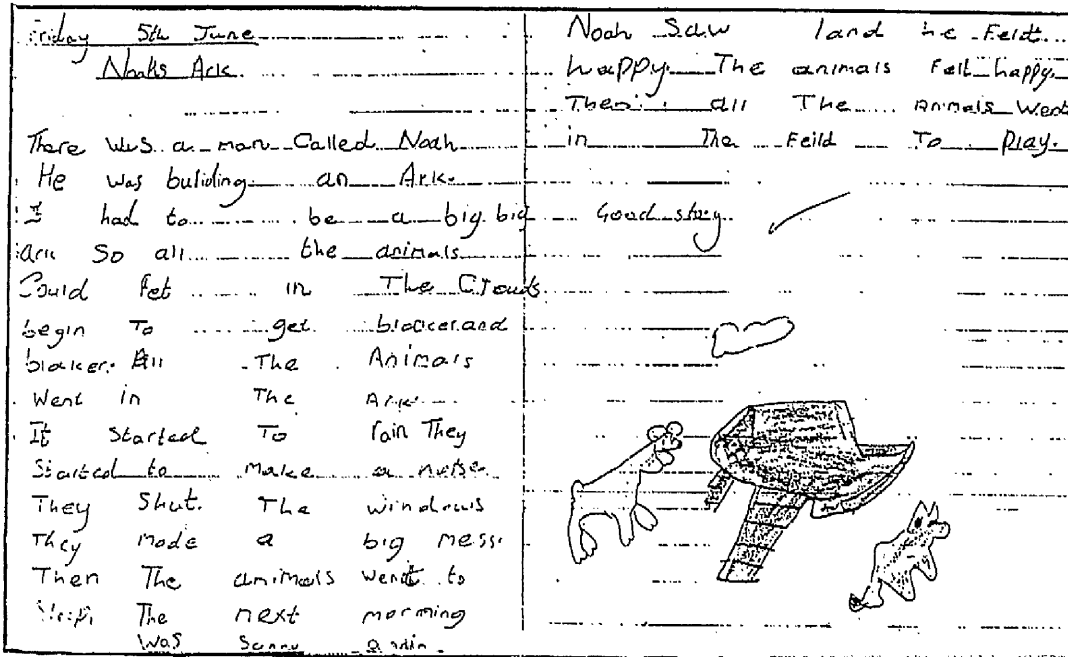 Friday 5th June
Noahs Ark.
There was a man Called Noah
He was buliding an Ark.
It had to be a big big
ark So all the animals
Could Fet in The Clouds
begin To get blacker and
blaker. All The Animals
Went in The Ark
It Started To rain They
Started to make a noise
They Shut. The windows
They made a big mess.
Then The animals went to
sleep. The next morning
was Sunny again.
Noah Saw land he Feldt
happy. The animals Felt happy.
Then all The Animals Went
in The Feild To Play.
Good story.